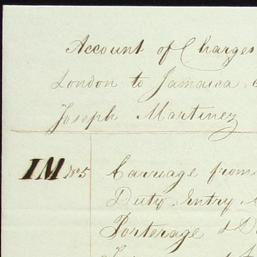 Account of Charges
London to Jamaica
Joseph Martinez
IM No 5 Carriage from
Duty Entry
Porterage &